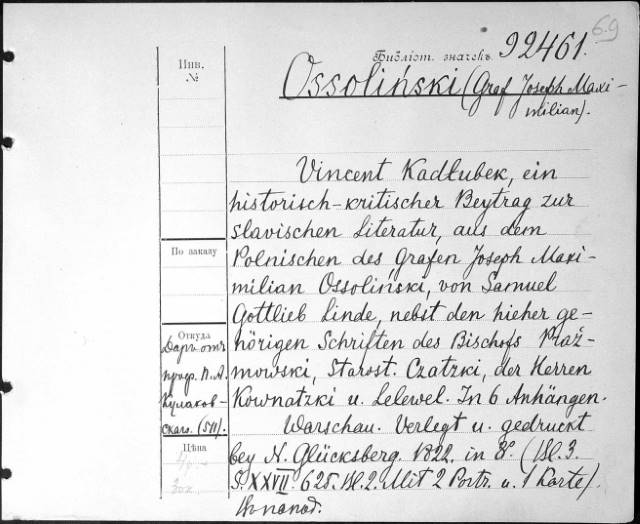 69
Библіот. значекъ 92461.
Инв.
№
Ossoliński (Graf Joseph Maxi-
milian).
Vincent Kadłubek, ein
historisch-kritischer Beytrag zur
slavischen Literatur, aus dem
Polnischen des Grafen Joseph Maxi-
milian Ossoliński, von Samuel
Gottlieb Linde, nebst den hieher ge-
hörigen Schriften des Bischofs Praż-
mowski, Starost. Czatzki, der Herren
Kownatzki u. Lelewel. In 6 Anhängen.
Warschau. Verlegt u. gedruckt
bey N. Glücksberg. 1822. in 8°. (Bl. 3.
S. XXVII. 625. Bl. 2. Mit 2 Portr. u. 1 Karte).
По заказу
Откуда
Даръ отъ
проф. П. А.
Кулаков-
скаго. (511).
Цѣна